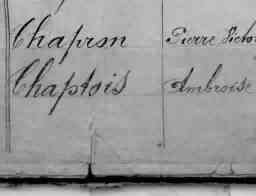 Chapron Pierre Victo
Chaptois Ambroise